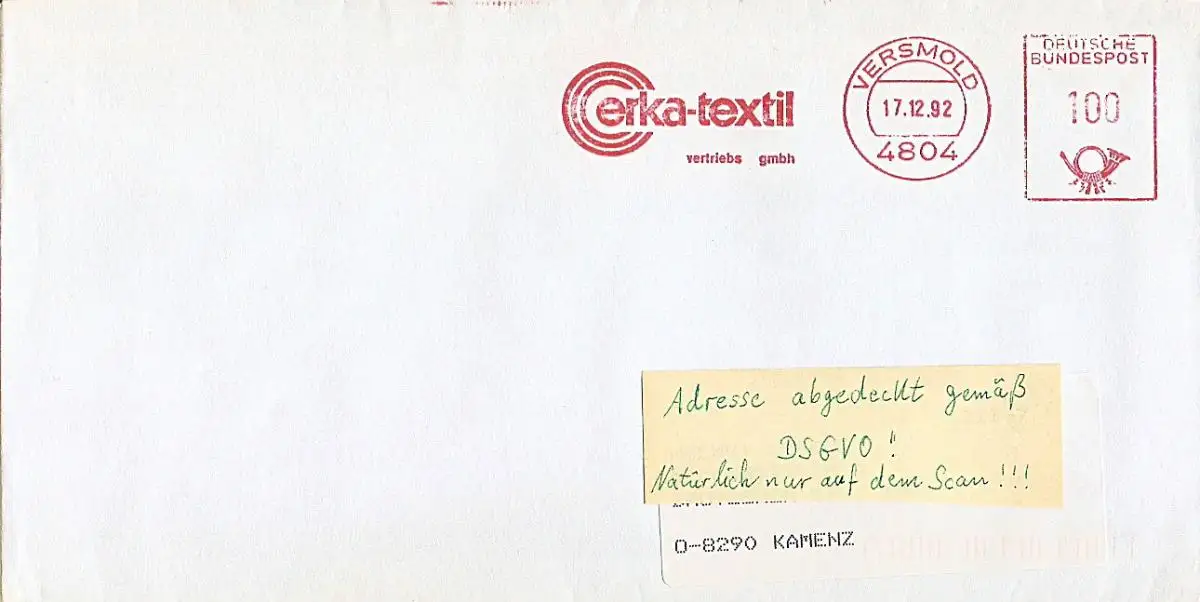 erka-textil
vertriebs gmbh
VERSMOLD
17.12.92
4804
DEUTSCHE
BUNDESPOST
100
Adresse abgedeckt gemäß
DSGVO!
Natürlich nur auf dem Scan!!!
O-8290 KAMENZ